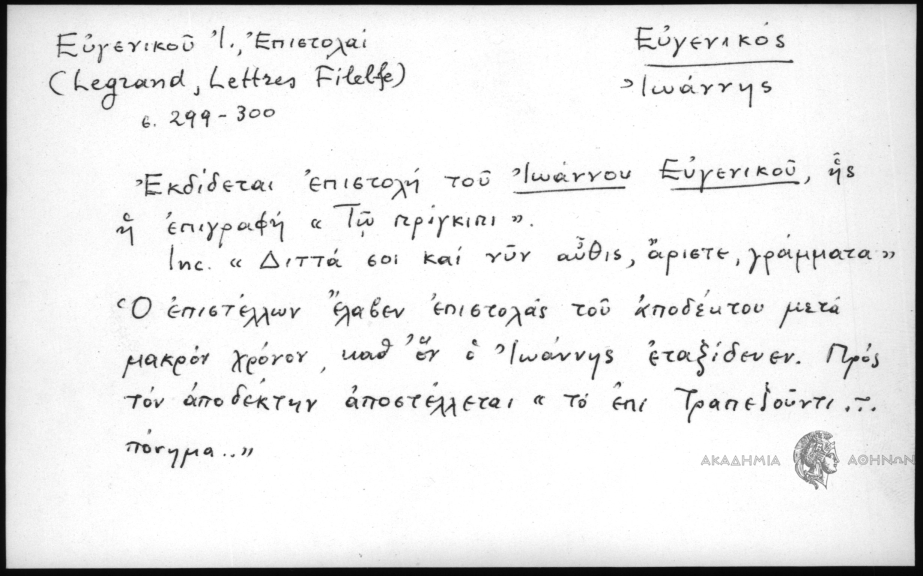 Εὐγενικοῦ Ἰ., Ἐπιστολαί
(Legrand, Lettres Filelfe)
σ. 299-300
Εὐγενικός
Ἰωάννης
Ἐκδίδεται ἐπιστολή τοῦ Ἰωάννου Εὐγενικοῦ, ἧς
ἡ ἐπιγραφή « Τῷ πρίγκιπι ».
Inc. « Διττά σοι καί νῦν αὖθις, ἄριστε, γράμματα »
Ὁ ἐπιστέλλων ἔλαβεν ἐπιστολάς τοῦ ἀποδέκτου μετά
μακρόν χρόνον, καθ' ὅν ὁ Ἰωάννης ἐταξίδευεν. Πρός
τόν ἀποδέκτην ἀποστέλλεται « τό ἐπι Τραπεζοῦντι ...
πόνημα.. »
ΑΚΑΔΗΜΙΑ ΑΘΗΝΩΝ